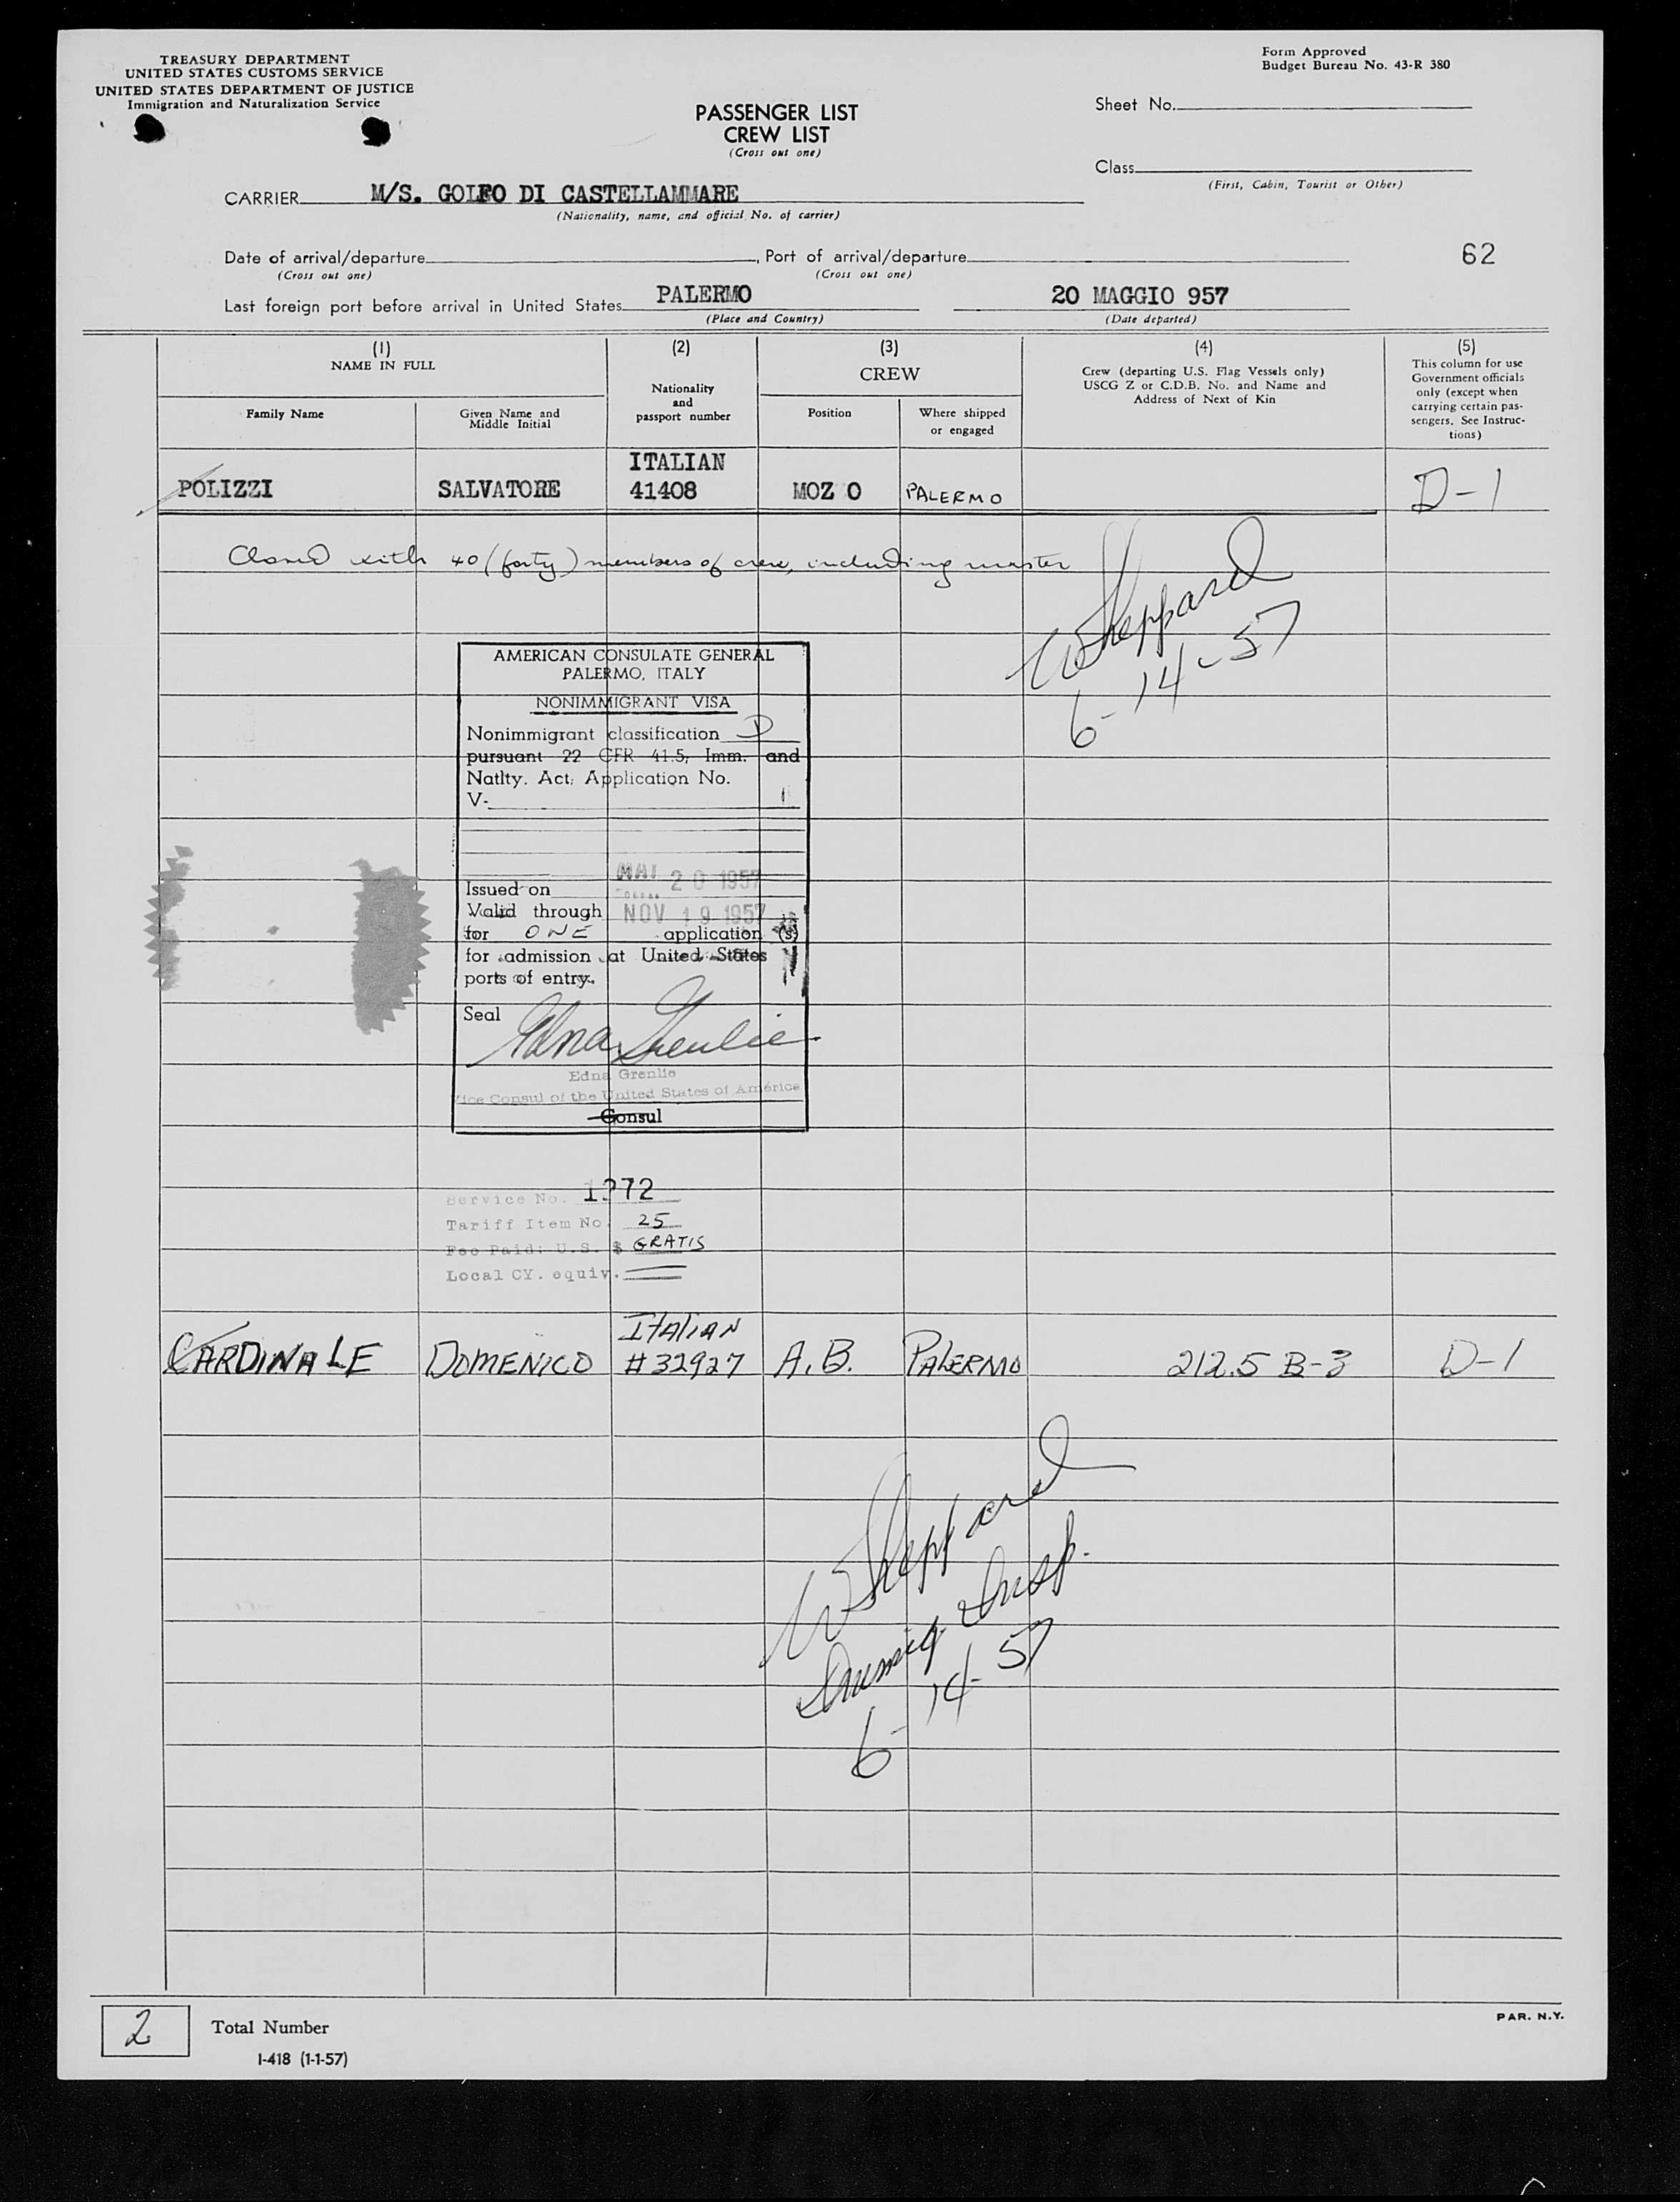 TREASURY DEPARTMENT
UNITED STATES CUSTOMS SERVICE
UNITED STATES DEPARTMENT OF JUSTICE
Immigration and Naturalization Service
Form Approved
Budget Bureau No. 43-R 380
PASSENGER LIST
CREW LIST
(Cross out one)
Sheet No.
Class
(First, Cabin, Tourist or Other)
CARRIER M/S. GOLFO DI CASTELLAMMARE
(Nationality, name, and official No. of carrier)
Date of arrival/departure , Port of arrival/departure
(Cross out one) (Cross out one)
62
Last foreign port before arrival in United States PALERMO 20 MAGGIO 957
(Place and Country) (Date departed)
(1) (2) (3) (4) (5)
NAME IN FULL
Family Name
Given Name and
Middle Initial
Nationality
and
passport number
CREW
Position
Where shipped
or engaged
Crew (departing U.S. Flag Vessels only)
USCG Z or C.D.B. No. and Name and
Address of Next of Kin
This column for use
Government officials
only (except when
carrying certain pas-
sengers. See Instruc-
tions)
ITALIAN
POLIZZI SALVATORE 41408 MOZ O PALERMO D-1
Closed with 40 (forty) members of crew, including master
W Sheppard
6-14-57
AMERICAN CONSULATE GENERAL
PALERMO, ITALY
NONIMMIGRANT VISA
Nonimmigrant classification D
pursuant 22 CFR 41.5, Imm. and
Natlty. Act; Application No.
V-
Issued on MAI 20 1957
Valid through NOV 19 1957
for ONE application (s)
for admission at United States
ports of entry.
Seal
Edna Grenlie
Edna Grenlie
Vice Consul of the United States of America
Consul
Service No. 1372
Tariff Item No. 25
Fee Paid: U.S. $ GRATIS
Local CY. equiv.
Italian
CARDINALE DOMENICO #32927 A.B. PALERMO 212.5 B-3 D-1
W Sheppard
Immig. Insp.
6-14-57
2 Total Number
I-418 (1-1-57)
PAR. N.Y.